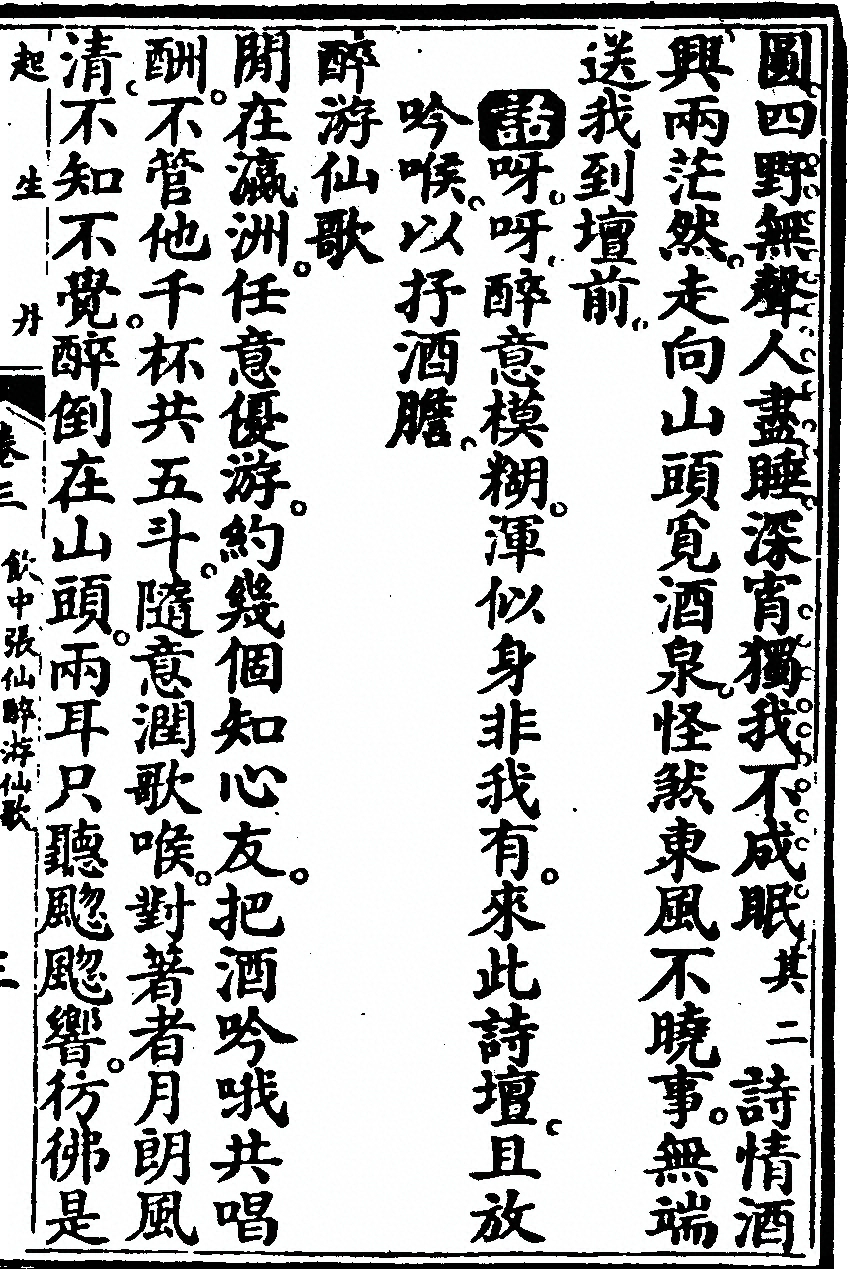 圓四野無聲人盡睡深宵獨我不成眠其二詩情酒
興兩茫然。走向山頭覓酒泉。怪煞東風不曉事。無端
送我到壇前。
話呀。呀。醉意模糊。渾似身非我有。來此詩壇。且放
吟喉。以抒酒膽。
醉游仙歌
閒在瀛洲。任意優游。約幾個知心友。把酒吟哦共唱
酬。不管他千杯共五斗。隨意潤歌喉。對著者月朗風
清。不知不覺。醉倒在山頭。兩耳只聽颼颼響。彷彿是
起生丹
卷三 飲中張仙醉游仙歌 三